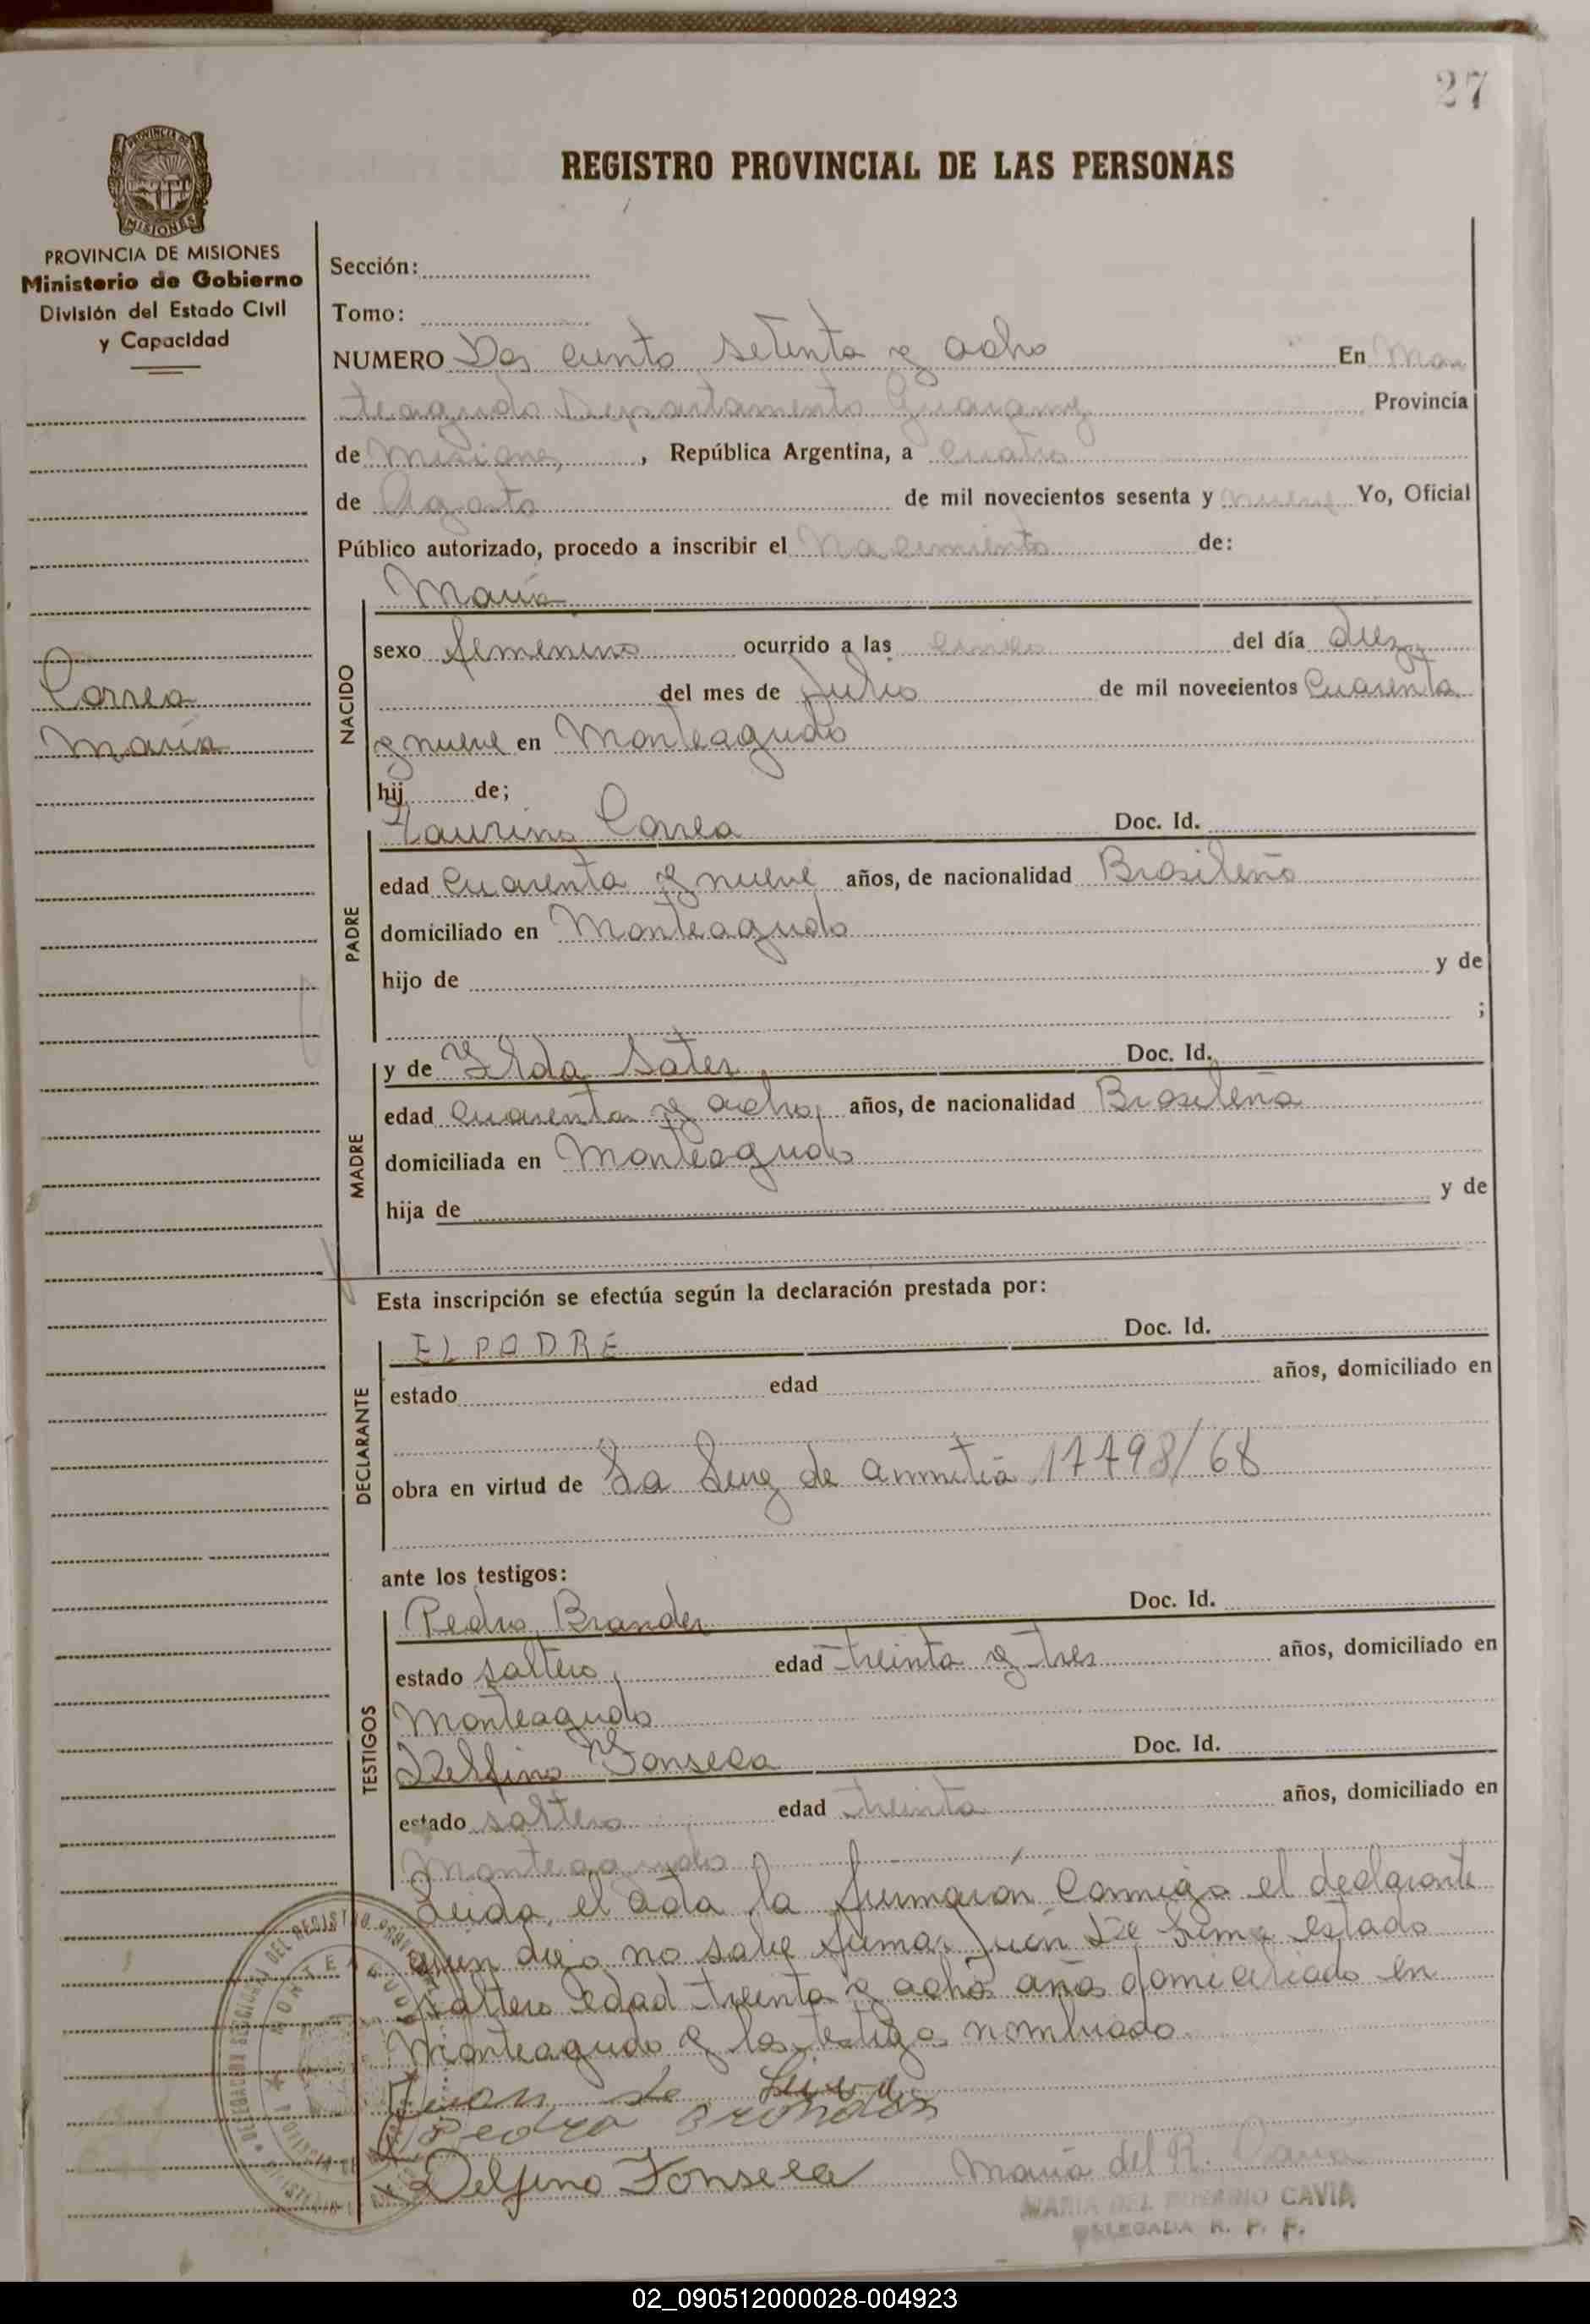 27
PROVINCIA DE
MISIONES
REGISTRO PROVINCIAL DE LAS PERSONAS
PROVINCIA DE MISIONES
Ministerio de Gobierno
División del Estado Civil
y Capacidad
Sección:
Tomo:
NUMERO Dos ciento setenta y ocho En Mon
teagudo Departamento Guarany Provincia
de Misiones, República Argentina, a cuatro
de Agosto de mil novecientos sesenta y nueve Yo, Oficial
Público autorizado, procedo a inscribir el Nacimiento de:
Correa
María
NACIDO
María
sexo femenino ocurrido a las cinco del día diez
del mes de Julio de mil novecientos Cuarenta
y nueve en Monteagudo
hij de;
PADRE
Laurino Correa Doc. Id.
edad Cuarenta y nueve años, de nacionalidad Brasileño
domiciliado en Monteagudo
hijo de y de
;
MADRE
y de Doc. Id.
edad cuarenta y ocho, años, de nacionalidad Brasileña
domiciliada en Monteagudo
hija de y de
Esta inscripción se efectúa según la declaración prestada por:
DECLARANTE
EL PADRE Doc. Id.
estado edad años, domiciliado en
obra en virtud de La Leey de 17798/68
ante los testigos:
TESTIGOS
Pedro Brander Doc. Id.
estado soltero, edad treinta y tres años, domiciliado en
Monteagudo
Delfino Fonseca Doc. Id.
estado soltero edad treinta años, domiciliado en
Monteagudo
Leida el acta la firmaron Conmigo el declarante
quien dijo no sabe firmar Juan De Lima estado
soltero edad treinta y ocho años domiciliado en
Monteagudo y los testigos nombrado
Juan de Lima
Pedro Brandes
Delfino Fonseca María del R. Cavia
MARIA DEL ROSARIO CAVIA
DELEGADA R. P. P.
MONTEAGUDO
02_090512000028-004923